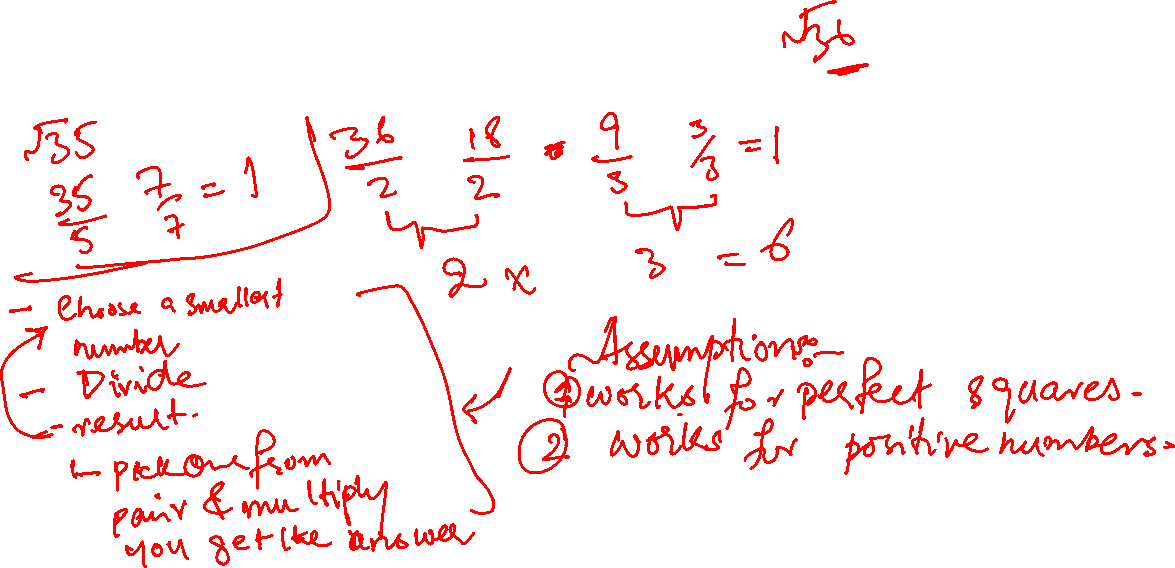 √36
√35
35/5 7/7 = 1
36/2 18/2 9/3 3/3 = 1
2 x 3 = 6
- Choose a smallest
number
- Divide
- result.
Pick one from
pair & multiply
you get the answer
Assumptions:-
① works for perfect squares.
② works for positive numbers.